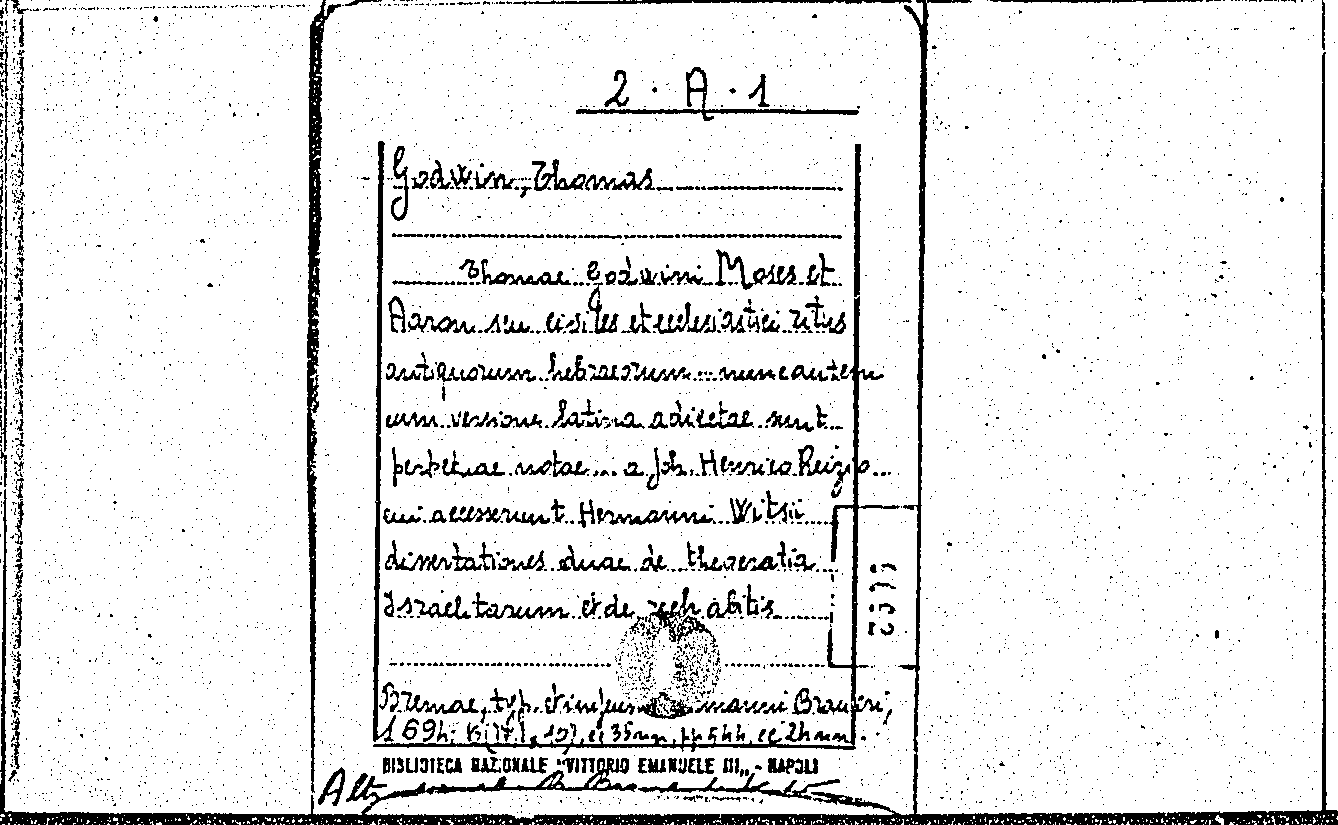 2 · A · 1
Godwin, Thomas
Thomae Godwini Moses et
Aaron seu civiles et ecclesiastici ritus
antiquorum hebraeorum... nunc autem
cum versione latina adiectae sunt
perpetuae notae... a Joh. Henrico Reizio...
cui accesserunt Hermanni Witsii
dissertationes duae de theocratia
Israelitarum et de rechabitis
Bremae, typ. et impens manni Braueri,
1694;
BIBLIOTECA NAZIONALE "VITTORIO EMANUELE III„ - NAPOLI